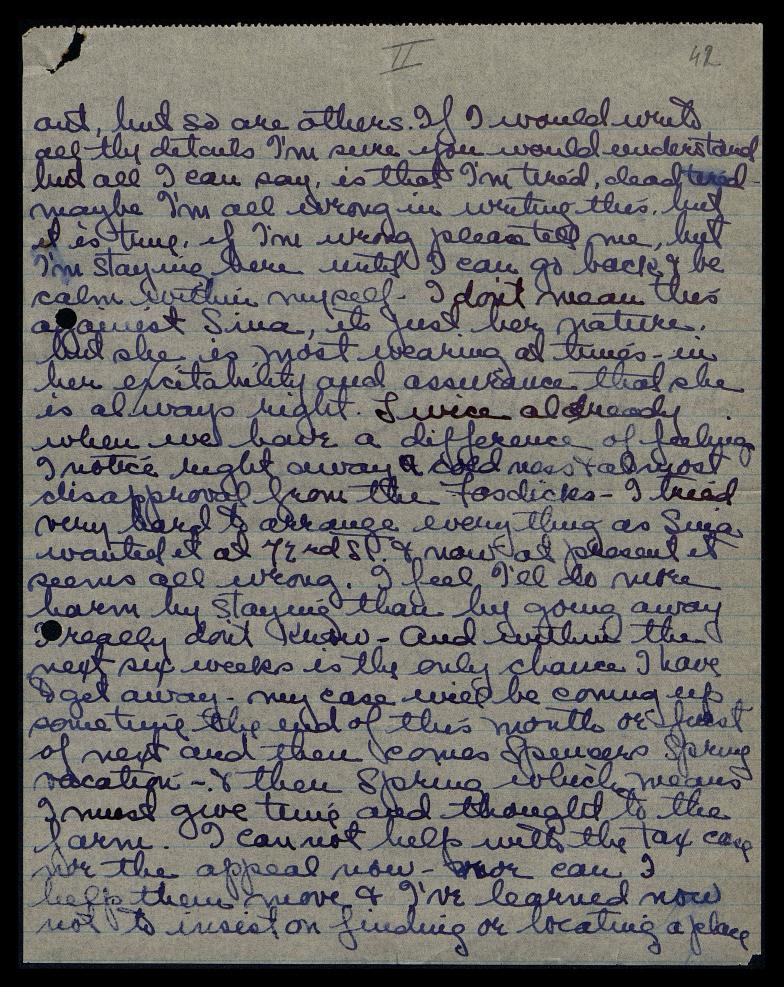 II 42
out, but so are others. If I would write
all the details I'm sure you would understand
but all I can say, is that I'm tired, dead tired -
maybe I'm all wrong in writing this, but
it is true, if I'm wrong please tell me, but
I'm staying here until I can go back & be
calm within myself - I don't mean this
against Sina, its just her nature,
but she is most wearing at times - in
her excitability and assurance that she
is always right. Twice already
when we have a difference of feeling
I notice right away a coldness & almost
disapproval from the Fosdicks - I tried
very hard to arrange everything as Sina
wanted it at 72nd St. & now at present it
seems all wrong. I feel I'll do more
harm by staying than by going away
I really don't know - And within the
next six weeks is the only chance I have
to get away - my case will be coming up
sometime the end of this month or first
of next and then comes Spencers Spring
vacation - & then Spring which means
I must give time and thought to the
farm. I cannot help with the tax case
nor the appeal now - nor can I
help them move & I've learned now
not to insist on finding or locating a place